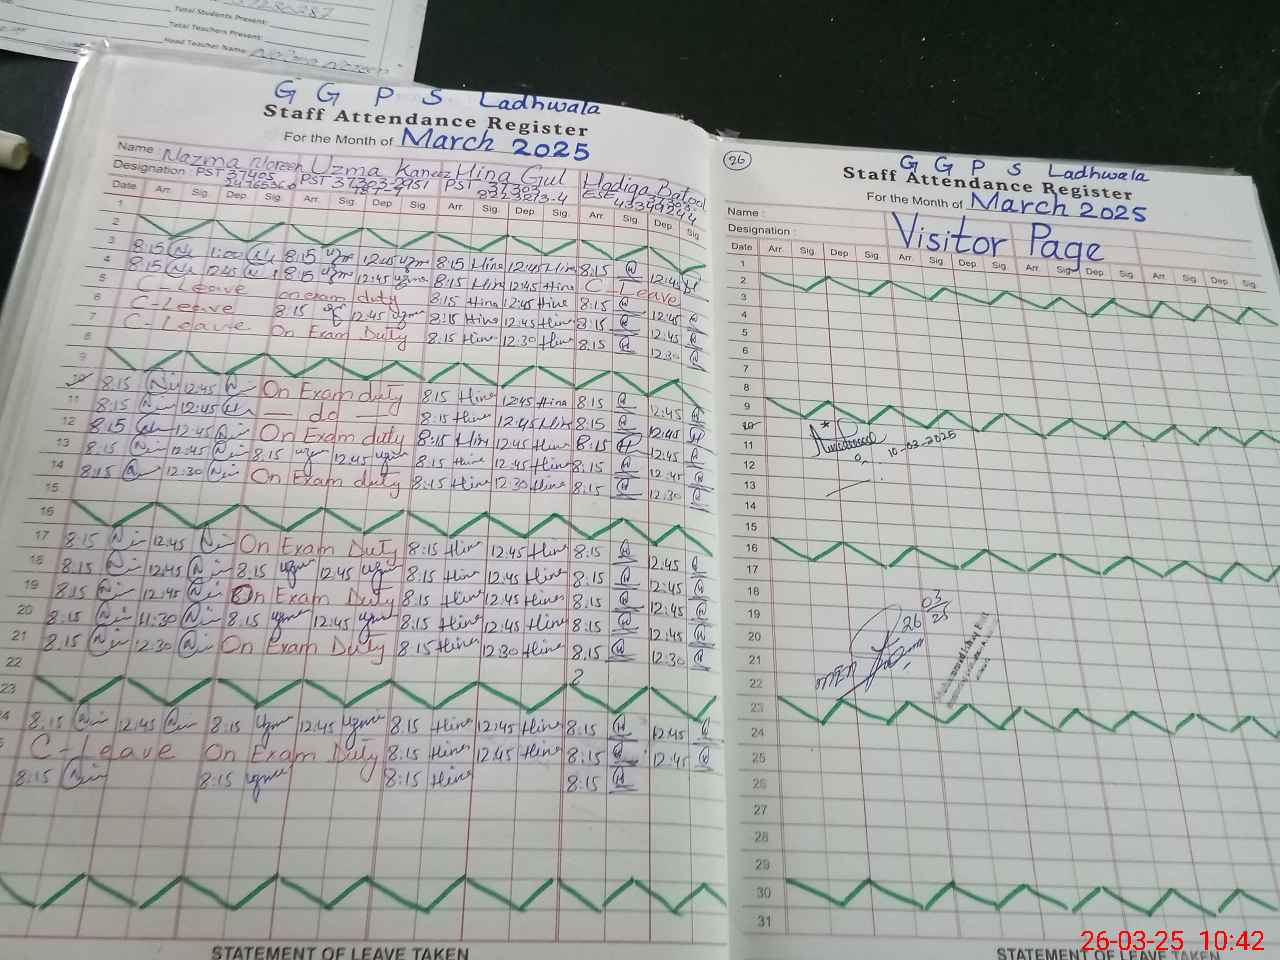 Total Students Present:
Total Teachers Present:
Head Teacher Name: Nazma Noreen
G G P S Ladhwala
Staff Attendance Register
For the Month of March 2025
Name: Nazma Noreen Uzma Kaneez Hina Gul Hadiqa Batool
Designation: PST 37405 PST 37303-2951 PST 37303 ESE 37303-
8323213-4 43349244
Date Arr. Sig. Dep Sig. Arr. Sig. Dep. Sig. Arr. Sig. Dep Sig. Arr. Sig. Dep Sig
1
2
3 8:15 1:00 8:15 Uzma 12:45 Uzma 8:15 Hina 12:45 Hina 8:15 12:45
4 8:15 12:45 8:15 Uzma 12:45 Uzma 8:15 Hina 12:45 Hina C-Leave
5 C-Leave on exam duty 8:15 Hina 12:45 Hina 8:15 12:45
6 C-Leave 8:15 12:45 Uzma 8:15 Hina 12:45 Hina 8:15 12:45
7 C-Leave On Exam Duty 8:15 Hina 12:30 Hina 8:15 12:30
8
9
10 8:15 12:45 On Exam duty 8:15 Hina 12:45 Hina 8:15 12:45
11 8:15 12:45 — do — 8:15 Hina 12:45 Hina 8:15 12:45
12 8:15 12:45 On Exam duty 8:15 Hina 12:45 Hina 8:15 12:45
13 8:15 12:45 8:15 Uzma 12:45 Uzma 8:15 Hina 12:45 Hina 8:15 12:45
14 8:15 12:30 On Exam duty 8:15 Hina 12:30 Hina 8:15 12:30
15
16
17 8:15 12:45 On Exam Duty 8:15 Hina 12:45 Hina 8:15 12:45
18 8:15 12:45 8:15 Uzma 12:45 Uzma 8:15 Hina 12:45 Hina 8:15 12:45
19 8:15 12:45 On Exam Duty 8:15 Hina 12:45 Hina 8:15 12:45
20 8:15 11:30 8:15 Uzma 12:45 Uzma 8:15 Hina 12:45 Hina 8:15 12:45
21 8:15 12:30 On Exam Duty 8:15 Hina 12:30 Hina 8:15 12:30
22
23
24 8:15 12:45 8:15 Uzma 12:45 Uzma 8:15 Hina 12:45 Hina 8:15 12:45
C-Leave On Exam Duty 8:15 Hina 12:45 Hina 8:15 12:45
8:15 8:15 Uzma 8:15 Hina 8:15
STATEMENT OF LEAVE TAKEN
26
G G P S Ladhwala
Staff Attendance Register
For the Month of March 2025
Name :
Designation :
Visitor Page
Date Arr. Sig. Dep Sig. Arr. Sig. Dep. Sig. Arr. Sig. Dep Sig. Arr. Sig. Dep Sig.
1
2
3
4
5
6
7
8
9
10
11 10-03-2025
12
13
14
15
16
17
18
19 03
20 26 25
21
22 MEA
23
24
25
26
27
28
29
30
31
STATEMENT OF LEAVE TAKEN
26-03-25 10:42